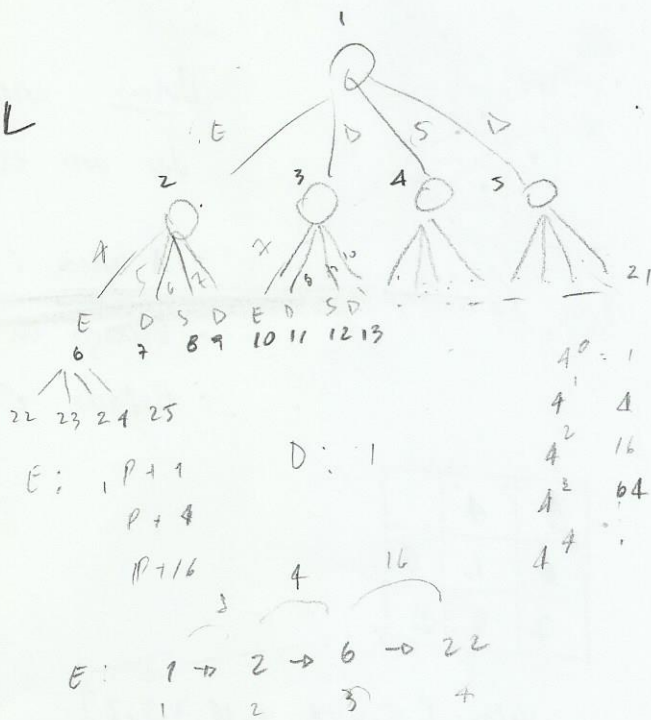 1
L
E D S D
2 3 4 5
5 6 7
21
E D S D E D S D
6 7 8 9 10 11 12 13
22 23 24 25
4^0 : 1
4^1 4
4^2 16
4^3 64
4^4 :
E : P + 1
P + 4
P + 16
D : 1
4 16
E : 1 → 2 → 6 → 22
1 2 3 4